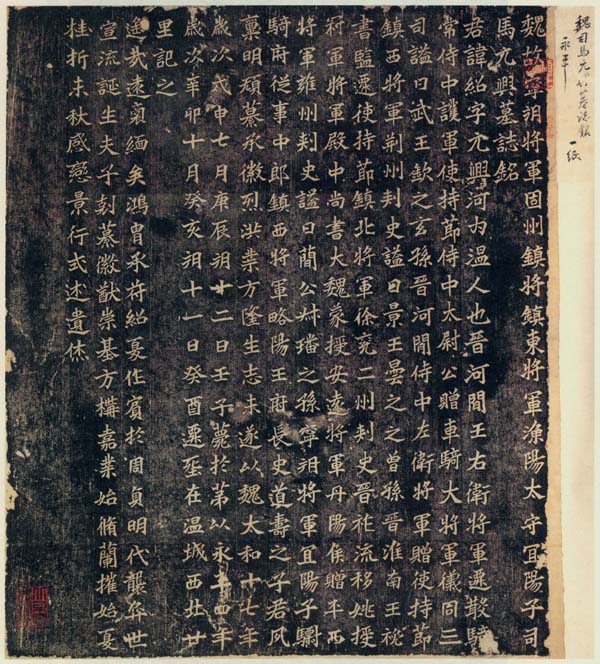 魏司馬元興墓誌銘 一紙
永平
魏故寧朔將軍固州鎮將鎮東將軍漁陽太守宜陽子司
馬元興墓誌銘
君諱紹字元興河內溫人也晉河間王右衛將軍遷散騎
常侍中護軍使持節侍中太尉公贈車騎大將軍儀同三
司謚曰武王欽之玄孫晉河間侍中左衛將軍贈使持節
鎮西將軍荊州刺史謚曰景王曇之之曾孫晉淮南王祕
書監遷使持節鎮北將軍徐兗二州刺史晉祚流移姚授
冠軍將軍殿中尚書大魏蒙授安遠將軍丹陽侯贈平西
將軍雍州刺史謚曰簡公叔璠之孫寧朔將軍宜陽子驃
騎府從事中郎鎮西將軍略陽王府長史道壽之子君夙
稟明頑纂承徽烈洪業方隆生志未遂以魏太和十七年
歲次戊申七月庚辰朔廿二日壬子薨於第以永平四年
歲次辛卯十月癸亥朔十一日癸酉遷塟在溫城西北廿
里記之
遙哉遠氣緬矣鴻胄承苻紹夏作賓於周貞明代襲弈世
宣流誕生夫子剋纂徽猷崇基方構嘉業始脩蘭摧始夏
桂折未秋感戀景行式述遺休